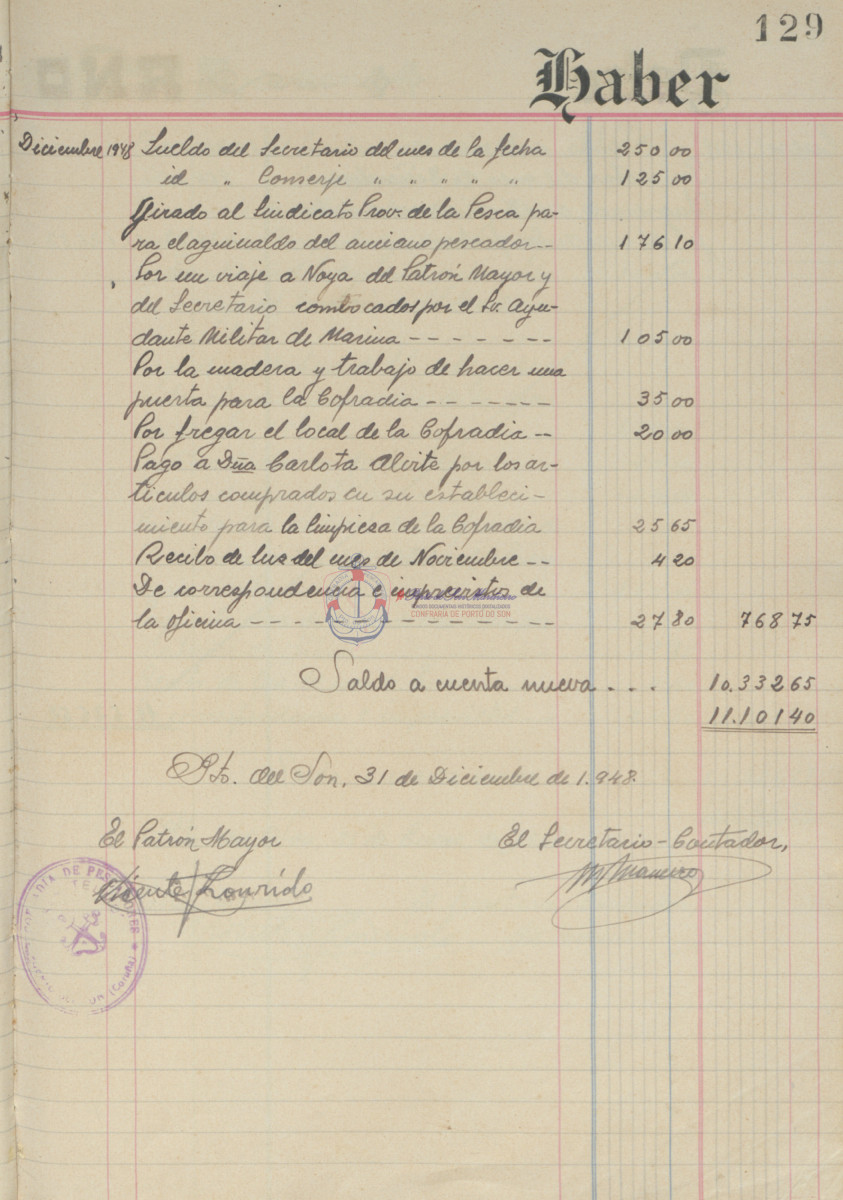 129
Haber
Diciembre 1948 Sueldo del Secretario del mes de la fecha 250 00
id " Conserje " " " " " 125 00
Girado al Sindicato Prov. de la Pesca pa-
ra el aguinaldo del anciano pescador -- 176 10
Por un viaje a Noya del Patrón Mayor y
del Secretario combocados por el Sr. Ayu-
dante Militar de Marina - - - - - - - 105 00
Por la madera y trabajo de hacer una
puerta para la Cofradia - - - - - - - 35 00
Por fregar el local de la Cofradia -- 20 00
Pago a Dña Carlota Alvite por los ar-
tículos comprados en su estableci-
miento para la limpiesa de la Cofradia 25 65
Recibo de lus del mes de Noviembre -- 4 20
De correspondencia e imprevistos de
la oficina - - - - - - - - - - - - - - - 27 80 768 75
CONFRARÍA DE PORTO DO SON
Saldo a cuenta nueva . . . 10.332 65
11.101 40
Pto. del Son, 31 de Diciembre de 1.948.
El Patrón Mayor El Secretario-Contador,
Vicente Lourido
COFRADIA DE PESCADORES (Coruña)